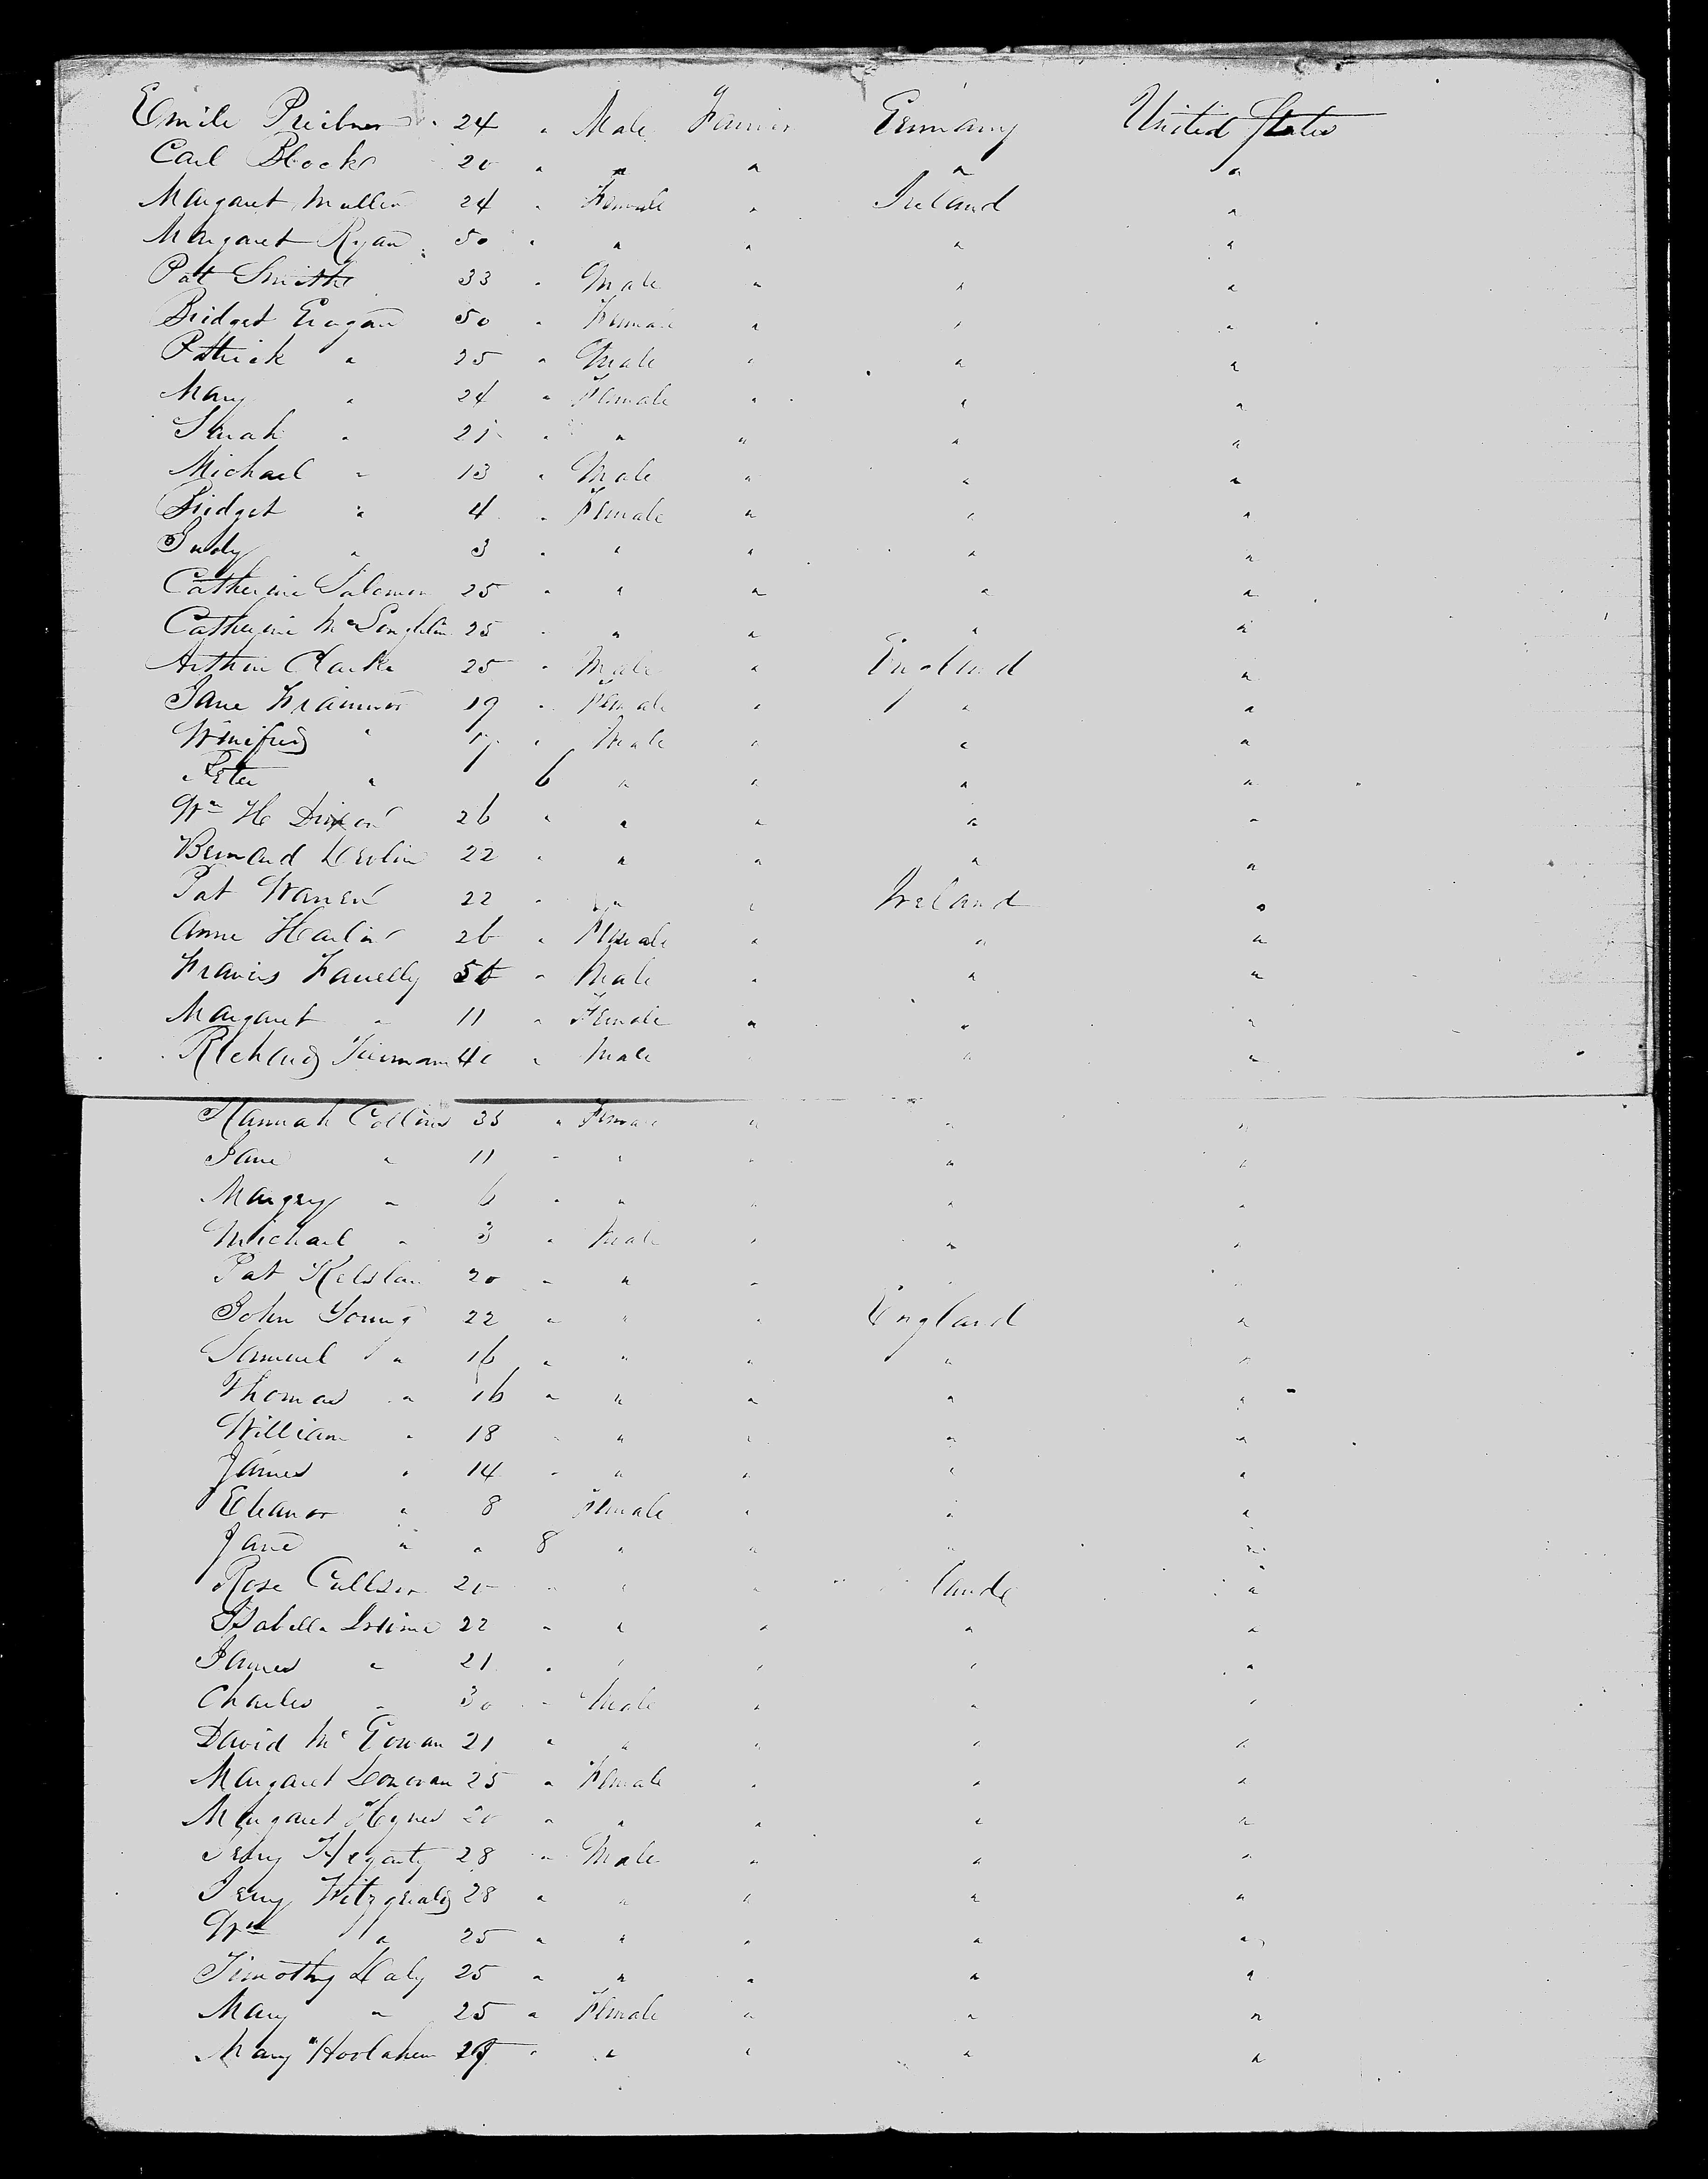 Emile Preibner " 24 " Male Farmer Germany United States
Carl Block 20 " " " " "
Margaret Mullen 24 " Female " Ireland "
Margaret Ryan 50 " " " " "
Pat Smith 33 " Male " " "
Bridget Geogan 50 " Female " " "
Patrick " 25 " Male " " "
Mary " 24 " Female " " "
Sarah " 21 " " " " "
Michael " 13 " Male " " "
Bridget " 4 " Female " " "
Judy " 3 " " " " "
Catherine Salomon 25 " " " " "
Catherine Mc 25 " " " " "
Arthur Clarke 25 " Male " England "
Jane 19 " Female " " "
Winifred " 17 " Male " " "
Peter " 6 " " " "
Wm H Dixon 26 " " " " "
Bernard Devlin 22 " " " " "
Pat Warren 22 " " " Ireland "
Anne Harlin 26 " Female " " "
Francis Farrelly 56 " Male " " "
Margaret " 11 " Female " " "
Richard 40 " Male " " "
Hannah Collins 35 " Female " " "
Jane " 11 " " " " "
Margery " 6 " " " " "
Michael " 3 " Male " " "
Pat 20 " " " " "
John Young 22 " " " England "
Samuel " 16 " " " " "
Thomas " 16 " " " " "
William " 18 " " " " "
James " 14 " " " " "
Eleanor " 8 Female " " "
Jane " " 8 " " " "
Rose 20 " " " land "
Isabella 22 " " " " "
James " 21 " " " " "
Charles " 30 " Male " " "
David McGowan 21 " " " " "
Margaret Donovan 25 " Female " " "
Margaret Hynes 20 " " " " "
Jerry Hegarty 28 " Male " " "
Jerry Fitzgerald 28 " " " " "
Wm " 25 " " " " "
Timothy Daly 25 " " " " "
Mary " 25 " Female " " "
Mary Hoolahen " " " " "